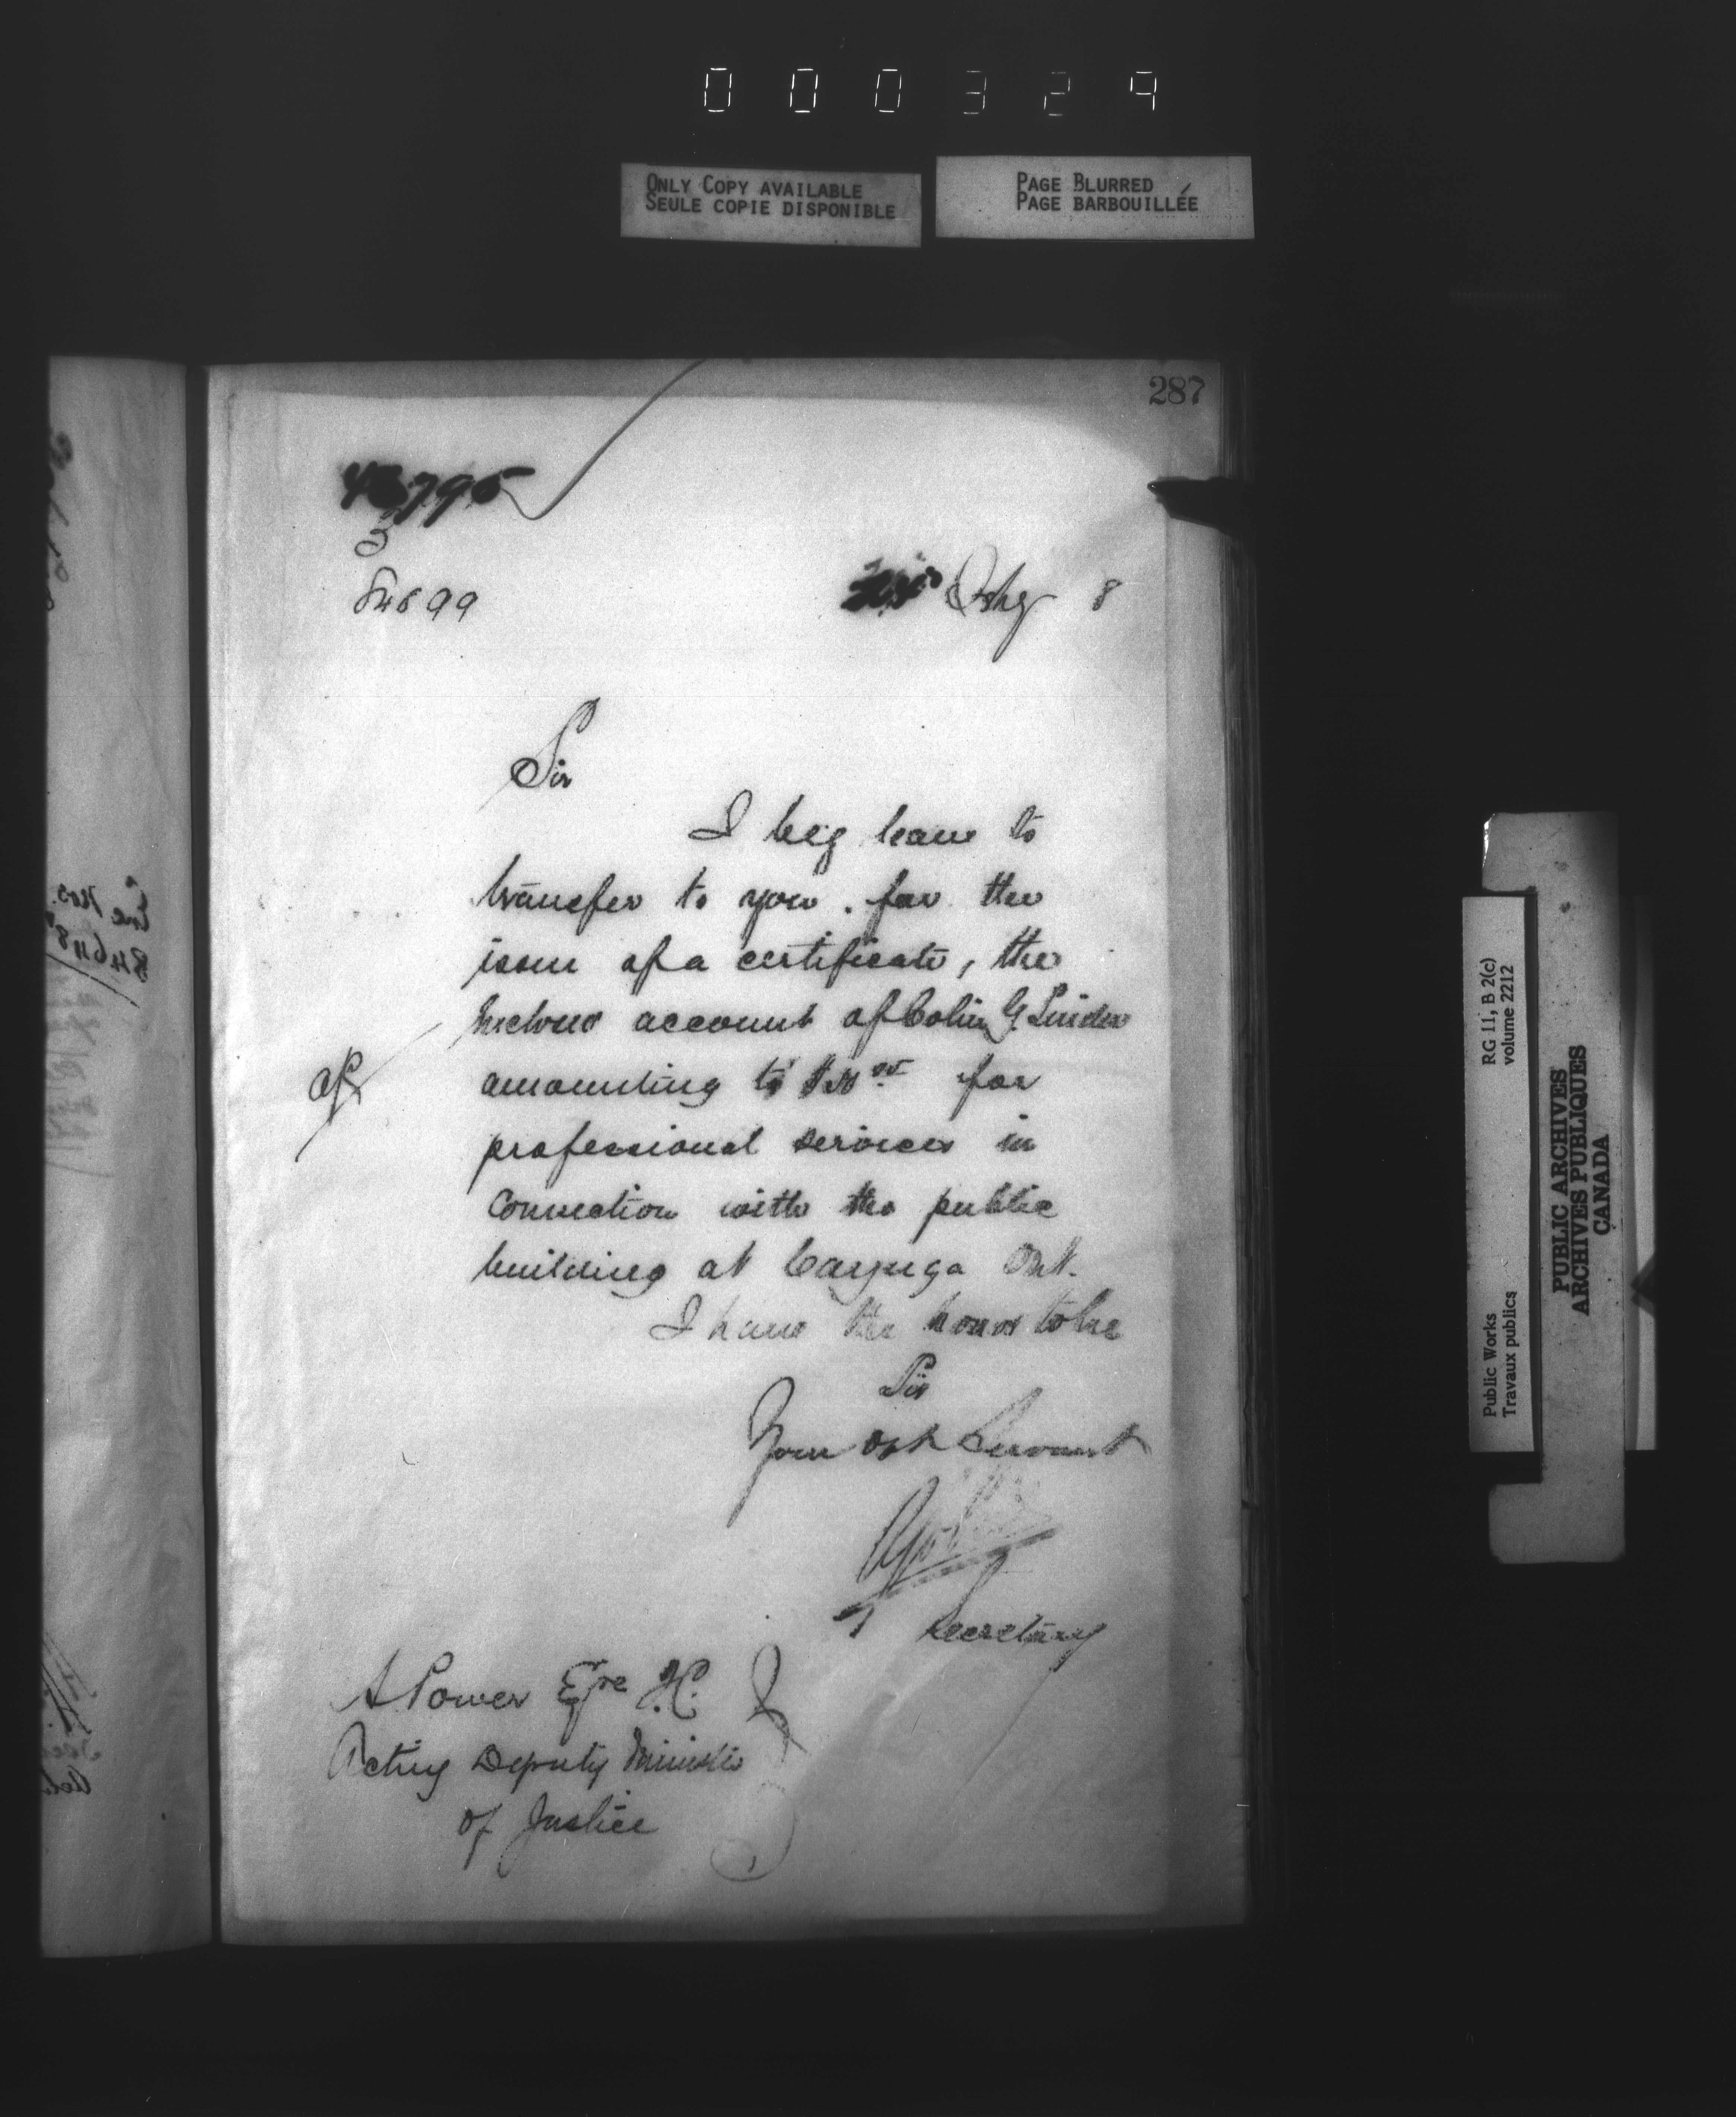 000329
ONLY COPY AVAILABLE
SEULE COPIE DISPONIBLE
PAGE BLURRED
PAGE BARBOUILLÉE
287
84699
8
Sir
I beg leave to
transfer to you. for the
issue of a certificate, the
account of Colin G
amounting to for
professional services in
connection with the public
building at Cayuga Ont.
I have the honor to be
Sir
Your Obt Servant
Secretary
A Power Esqre Q.C.
Acting Deputy Minister
of Justice
Public Works
Travaux publics
RG 11, B 2(c)
volume 2212
PUBLIC ARCHIVES
ARCHIVES PUBLIQUES
CANADA